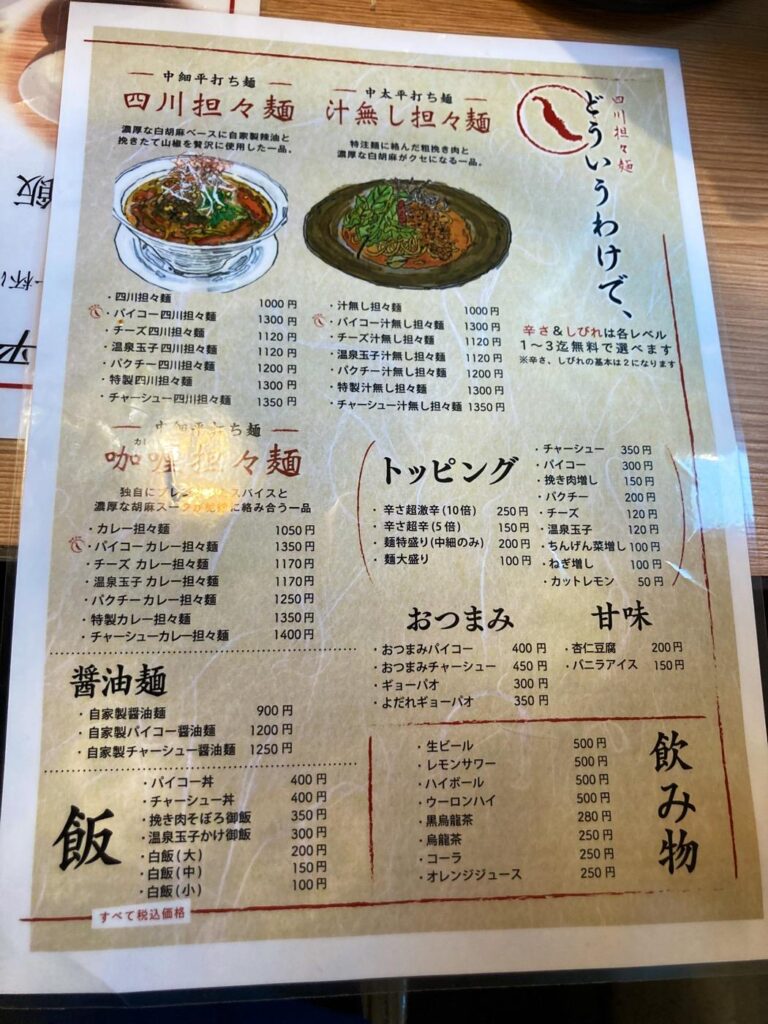 四川担々麺
どういうわけで、
辛さ&しびれは各レベル
1～3迄無料で選べます
※辛さ、しびれの基本は2になります
中細平打ち麺
四川担々麺
濃厚な白胡麻ベースに自家製辣油と
挽きたて山椒を贅沢に使用した一品。
・四川担々麺 1000円
・パイコー四川担々麺 1300円
・チーズ四川担々麺 1120円
・温泉玉子四川担々麺 1120円
・パクチー四川担々麺 1200円
・特製四川担々麺 1300円
・チャーシュー四川担々麺 1350円
中太平打ち麺
汁無し担々麺
特注麺に絡んだ粗挽き肉と
濃厚な白胡麻がクセになる一品。
・汁無し担々麺 1000円
・パイコー汁無し担々麺 1300円
・チーズ汁無し担々麺 1120円
・温泉玉子汁無し担々麺 1120円
・パクチー汁無し担々麺 1200円
・特製汁無し担々麺 1300円
・チャーシュー汁無し担々麺 1350円
中細平打ち麺
咖喱担々麺
独自にブレンド スパイスと
濃厚な胡麻スープが 絡み合う一品
・カレー担々麺 1050円
・パイコーカレー担々麺 1350円
・チーズ カレー担々麺 1170円
・温泉玉子 カレー担々麺 1170円
・パクチーカレー担々麺 1250円
・特製カレー担々麺 1350円
・チャーシューカレー担々麺 1400円
トッピング
・辛さ超激辛(10倍) 250円
・辛さ超辛(5倍) 150円
・麺特盛り(中細のみ) 200円
・麺大盛り 100円
・チャーシュー 350円
・パイコー 300円
・挽き肉増し 150円
・パクチー 200円
・チーズ 120円
・温泉玉子 120円
・ちんげん菜増し 100円
・ねぎ増し 100円
・カットレモン 50円
おつまみ
・おつまみパイコー 400円
・おつまみチャーシュー 450円
・ギョーパオ 300円
・よだれギョーパオ 350円
甘味
・杏仁豆腐 200円
・バニラアイス 150円
醤油麺
・自家製醤油麺 900円
・自家製パイコー醤油麺 1200円
・自家製チャーシュー醤油麺 1250円
飯
・パイコー丼 400円
・チャーシュー丼 400円
・挽き肉そぼろ御飯 350円
・温泉玉子かけ御飯 300円
・白飯(大) 200円
・白飯(中) 150円
・白飯(小) 100円
飲み物
・生ビール 500円
・レモンサワー 500円
・ハイボール 500円
・ウーロンハイ 500円
・黒烏龍茶 280円
・烏龍茶 250円
・コーラ 250円
・オレンジジュース 250円
すべて税込価格
飯